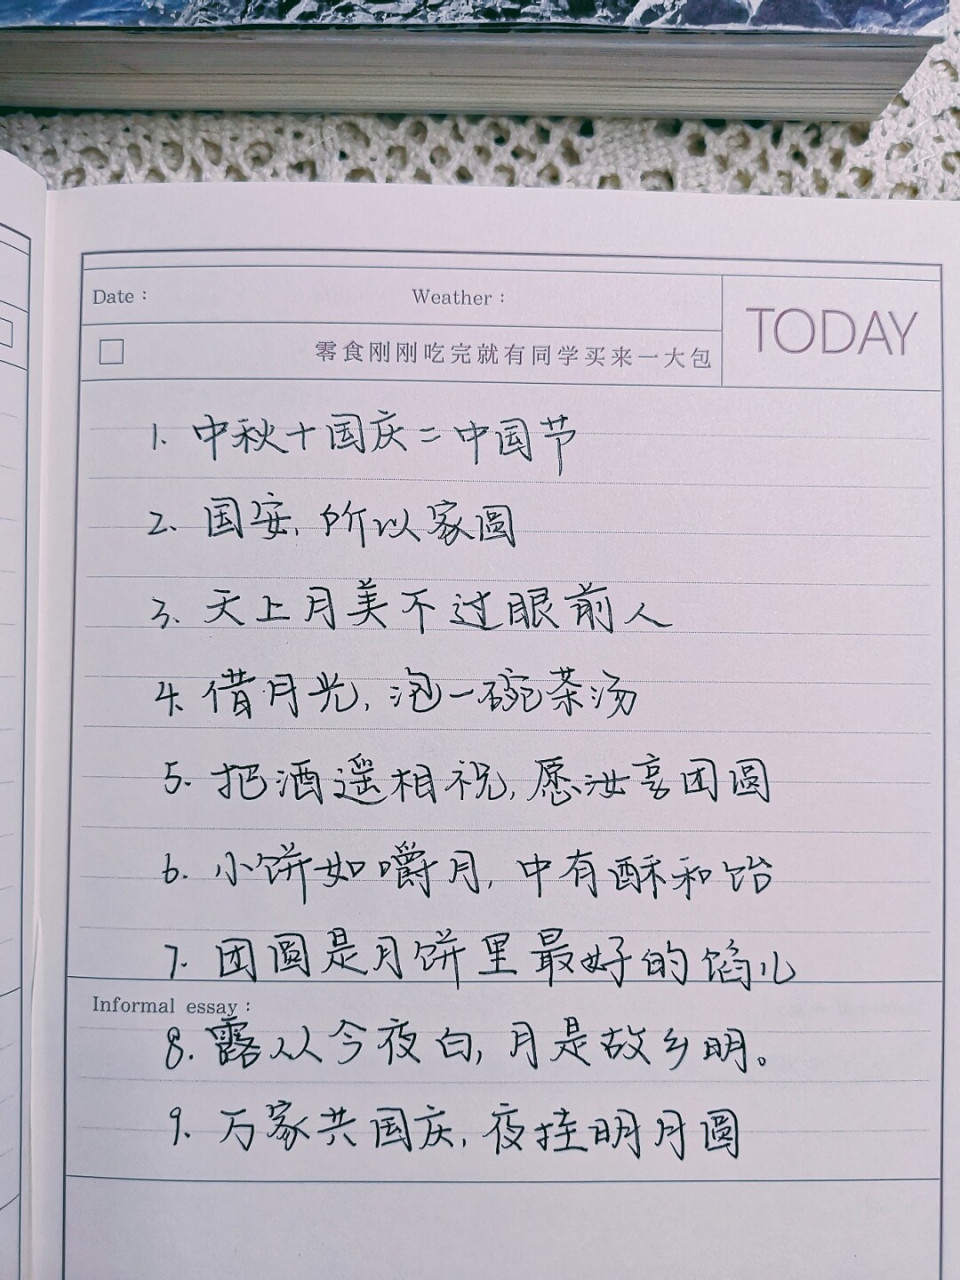 Date： Weather：
TODAY
零食刚刚吃完就有同学买来一大包
1. 中秋十国庆=中国节
2. 国安，所以家圆
3. 天上月美不过眼前人
4. 借月光，泡一碗茶汤
5. 把酒遥相祝，愿汝享团圆
6. 小饼如嚼月，中有酥和饴
7. 团圆是月饼里最好的馅儿
Informal essay：
8. 露从今夜白，月是故乡明。
9. 万家共国庆，夜挂明月圆